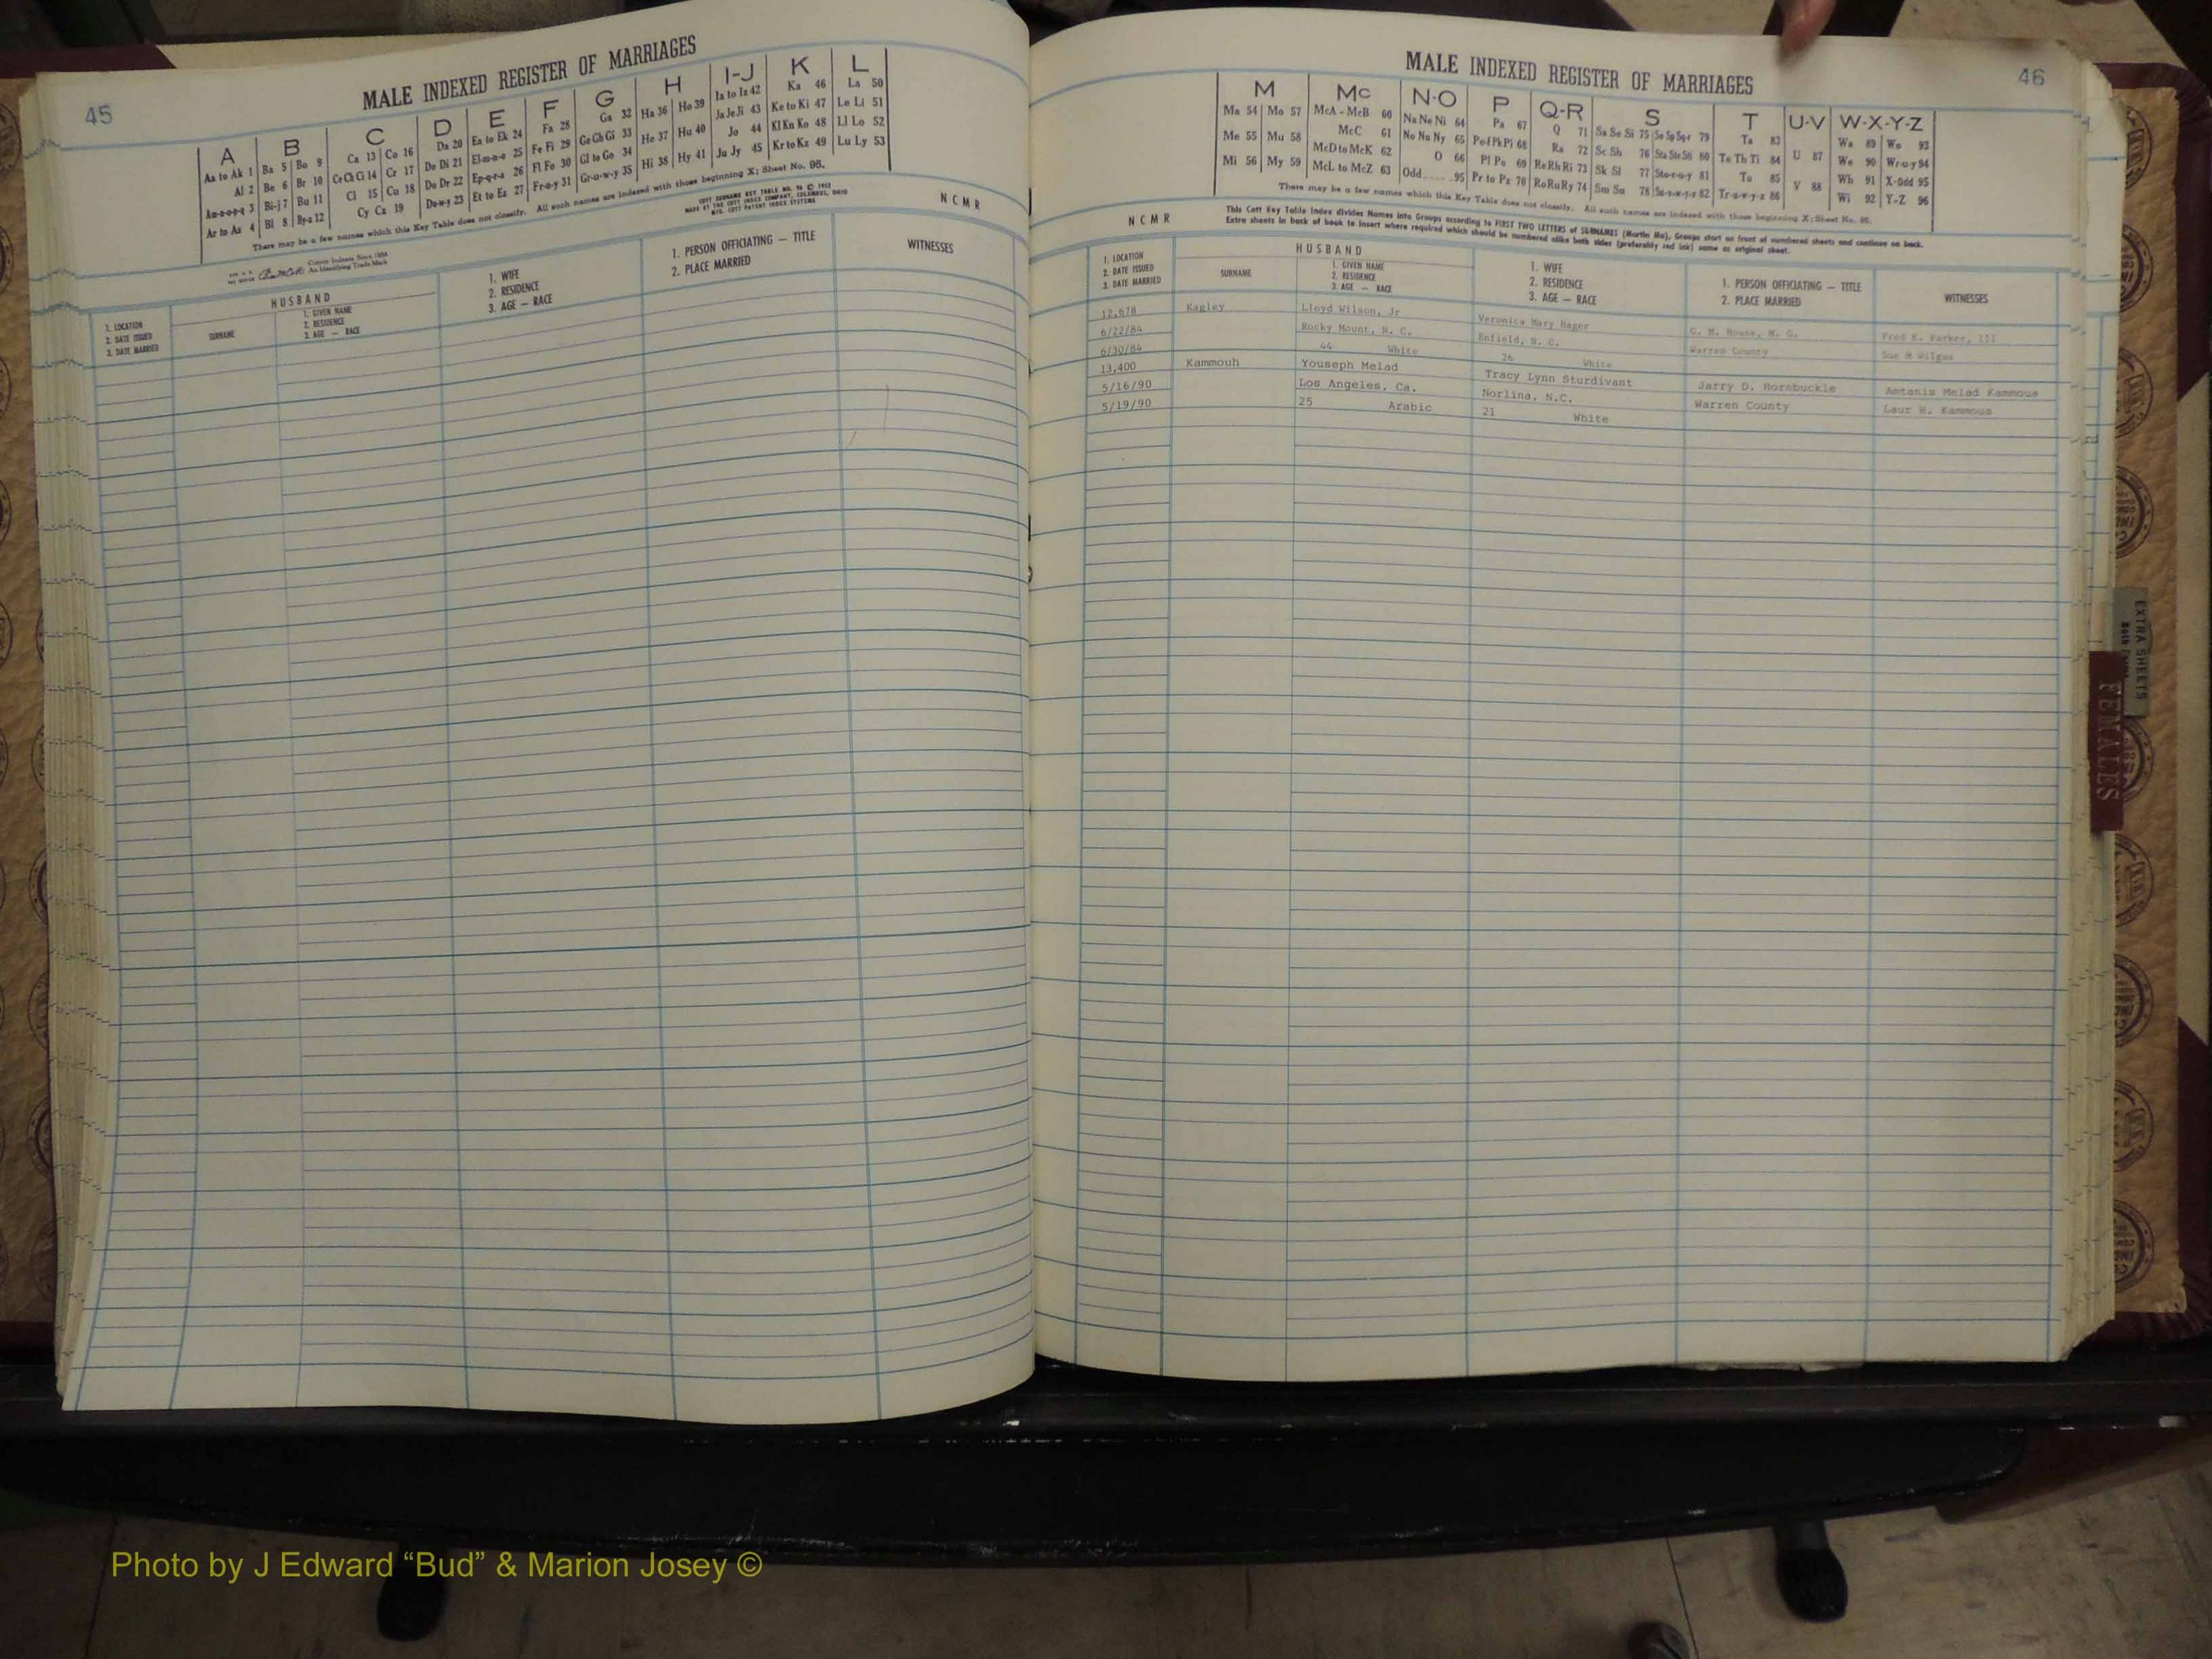 45
MALE INDEXED REGISTER OF MARRIAGES
A B C D E F G H I-J K L
Aa to Ak 1 Ba 5 Bo 9 Ca 13 Co 16 Da 20 Ea to Ek 24 Fa 28 Ga 32 Ha 36 Ho 39 Ia to Iz 42 Ka 46 La 50
Al 2 Be 6 Br 10 Ce Ch Ci 14 Cr 17 De Di 21 El-m-n-o 25 Fe Fi 29 Ge Gh Gi 33 He 37 Hu 40 Ja Je Ji 43 Ke to Ki 47 Le Li 51
Am-n-o-p-q 3 Bi-j 7 Bu 11 Cl 15 Cu 18 Do Dr 22 Ep-q-r-s 26 Fl Fo 30 Gl to Go 34 Hi 38 Hy 41 Jo 44 Kl Kn Ko 48 Ll Lo 52
Ar to Az 4 Bl 8 By-z 12 Cy Cz 19 Du-w-y 23 Et to Ez 27 Fr-u-y 31 Gr-u-w-y 35 Ju Jy 45 Kr to Kz 49 Lu Ly 53
There may be a few names which this Key Table does not classify. All such names are indexed with those beginning X; Sheet No. 95.
COTT SURNAME KEY TABLE NO. 96 © 1952
MADE BY THE COTT INDEX COMPANY, COLUMBUS, OHIO
MFG. COTT PATENT INDEX SYSTEMS
County Indexes Since 1888
An Identifying Trade Mark
N C M R
1. LOCATION
2. DATE ISSUED
3. DATE MARRIED
HUSBAND
SURNAME
1. GIVEN NAME
2. RESIDENCE
3. AGE — RACE
1. WIFE
2. RESIDENCE
3. AGE — RACE
1. PERSON OFFICIATING — TITLE
2. PLACE MARRIED
WITNESSES
MALE INDEXED REGISTER OF MARRIAGES
46
M Mc N-O P Q-R S T U-V W-X-Y-Z
Ma 54 Mo 57 McA - McB 60 Na Ne Ni 64 Pa 67 Q 71 Sa Se Si 75 So Sp Sq-r 79 Ta 83 U 87 Wa 89 Wo 93
Me 55 Mu 58 McC 61 No Nu Ny 65 Pe-f Ph Pi 68 Ra 72 Sc Sh 76 Sta Ste Sti 80 Te Th Ti 84 V 88 We 90 Wr-u-y 94
Mi 56 My 59 McD to McK 62 O 66 Pl Po 69 Re Rh Ri 73 Sk Sl 77 Sto-r-u-y 81 To 85 Wh 91 X-Odd 95
McL to McZ 63 Odd 95 Pr to Pz 70 Ro Ru Ry 74 Sm Sn 78 Su-v-w-y-z 82 Tr-u-w-y-z 86 Wi 92 Y-Z 96
There may be a few names which this Key Table does not classify. All such names are indexed with those beginning X; Sheet No. 95.
This Cott Key Table Index divides Names into Groups according to FIRST TWO LETTERS of SURNAMES (Martin Ma), Groups start on front of numbered sheets and continue on back.
Extra sheets in back of book to insert where required which should be numbered alike both sides (preferably red ink) same as original sheet.
N C M R
1. LOCATION
2. DATE ISSUED
3. DATE MARRIED
HUSBAND
SURNAME
1. GIVEN NAME
2. RESIDENCE
3. AGE — RACE
1. WIFE
2. RESIDENCE
3. AGE — RACE
1. PERSON OFFICIATING — TITLE
2. PLACE MARRIED
WITNESSES
12,678 Kagley Lloyd Wilson, Jr Veronica Mary Hager C. M. House, M. G. Fred E. Parker, III
6/22/84 Rocky Mount, N. C. Enfield, N. C. Warren County Sue M Wilgus
6/30/84 44 White 26 White
13,400 Kammouh Youseph Melad Tracy Lynn Sturdivant Jarry D. Hornbuckle Antanis Melad Kammoua
5/16/90 Los Angeles, Ca. Norlina, N.C. Warren County Laur H. Kammoua
5/19/90 25 Arabic 21 White
EXTRA SHEETS
FEMALES
Photo by J Edward “Bud” & Marion Josey ©